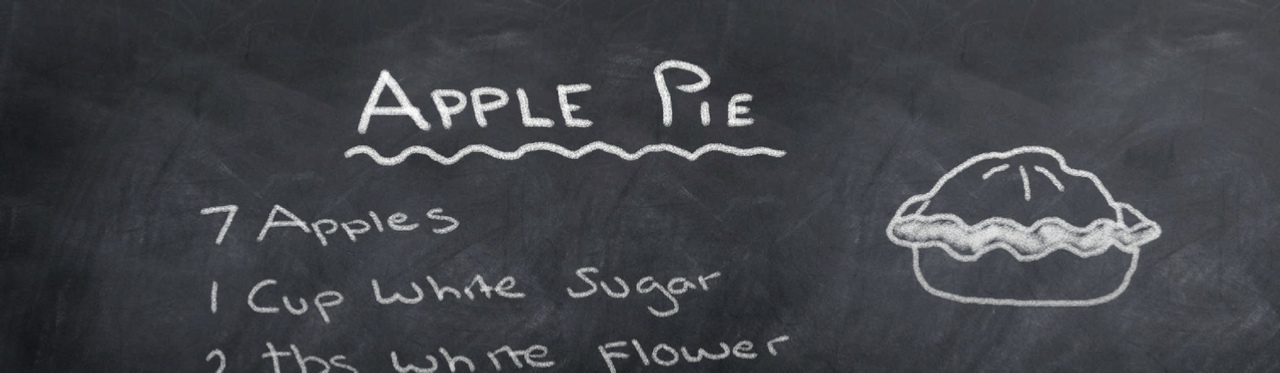 APPLE PIE
7 Apples
1 Cup White Sugar
2 tbs white Flower